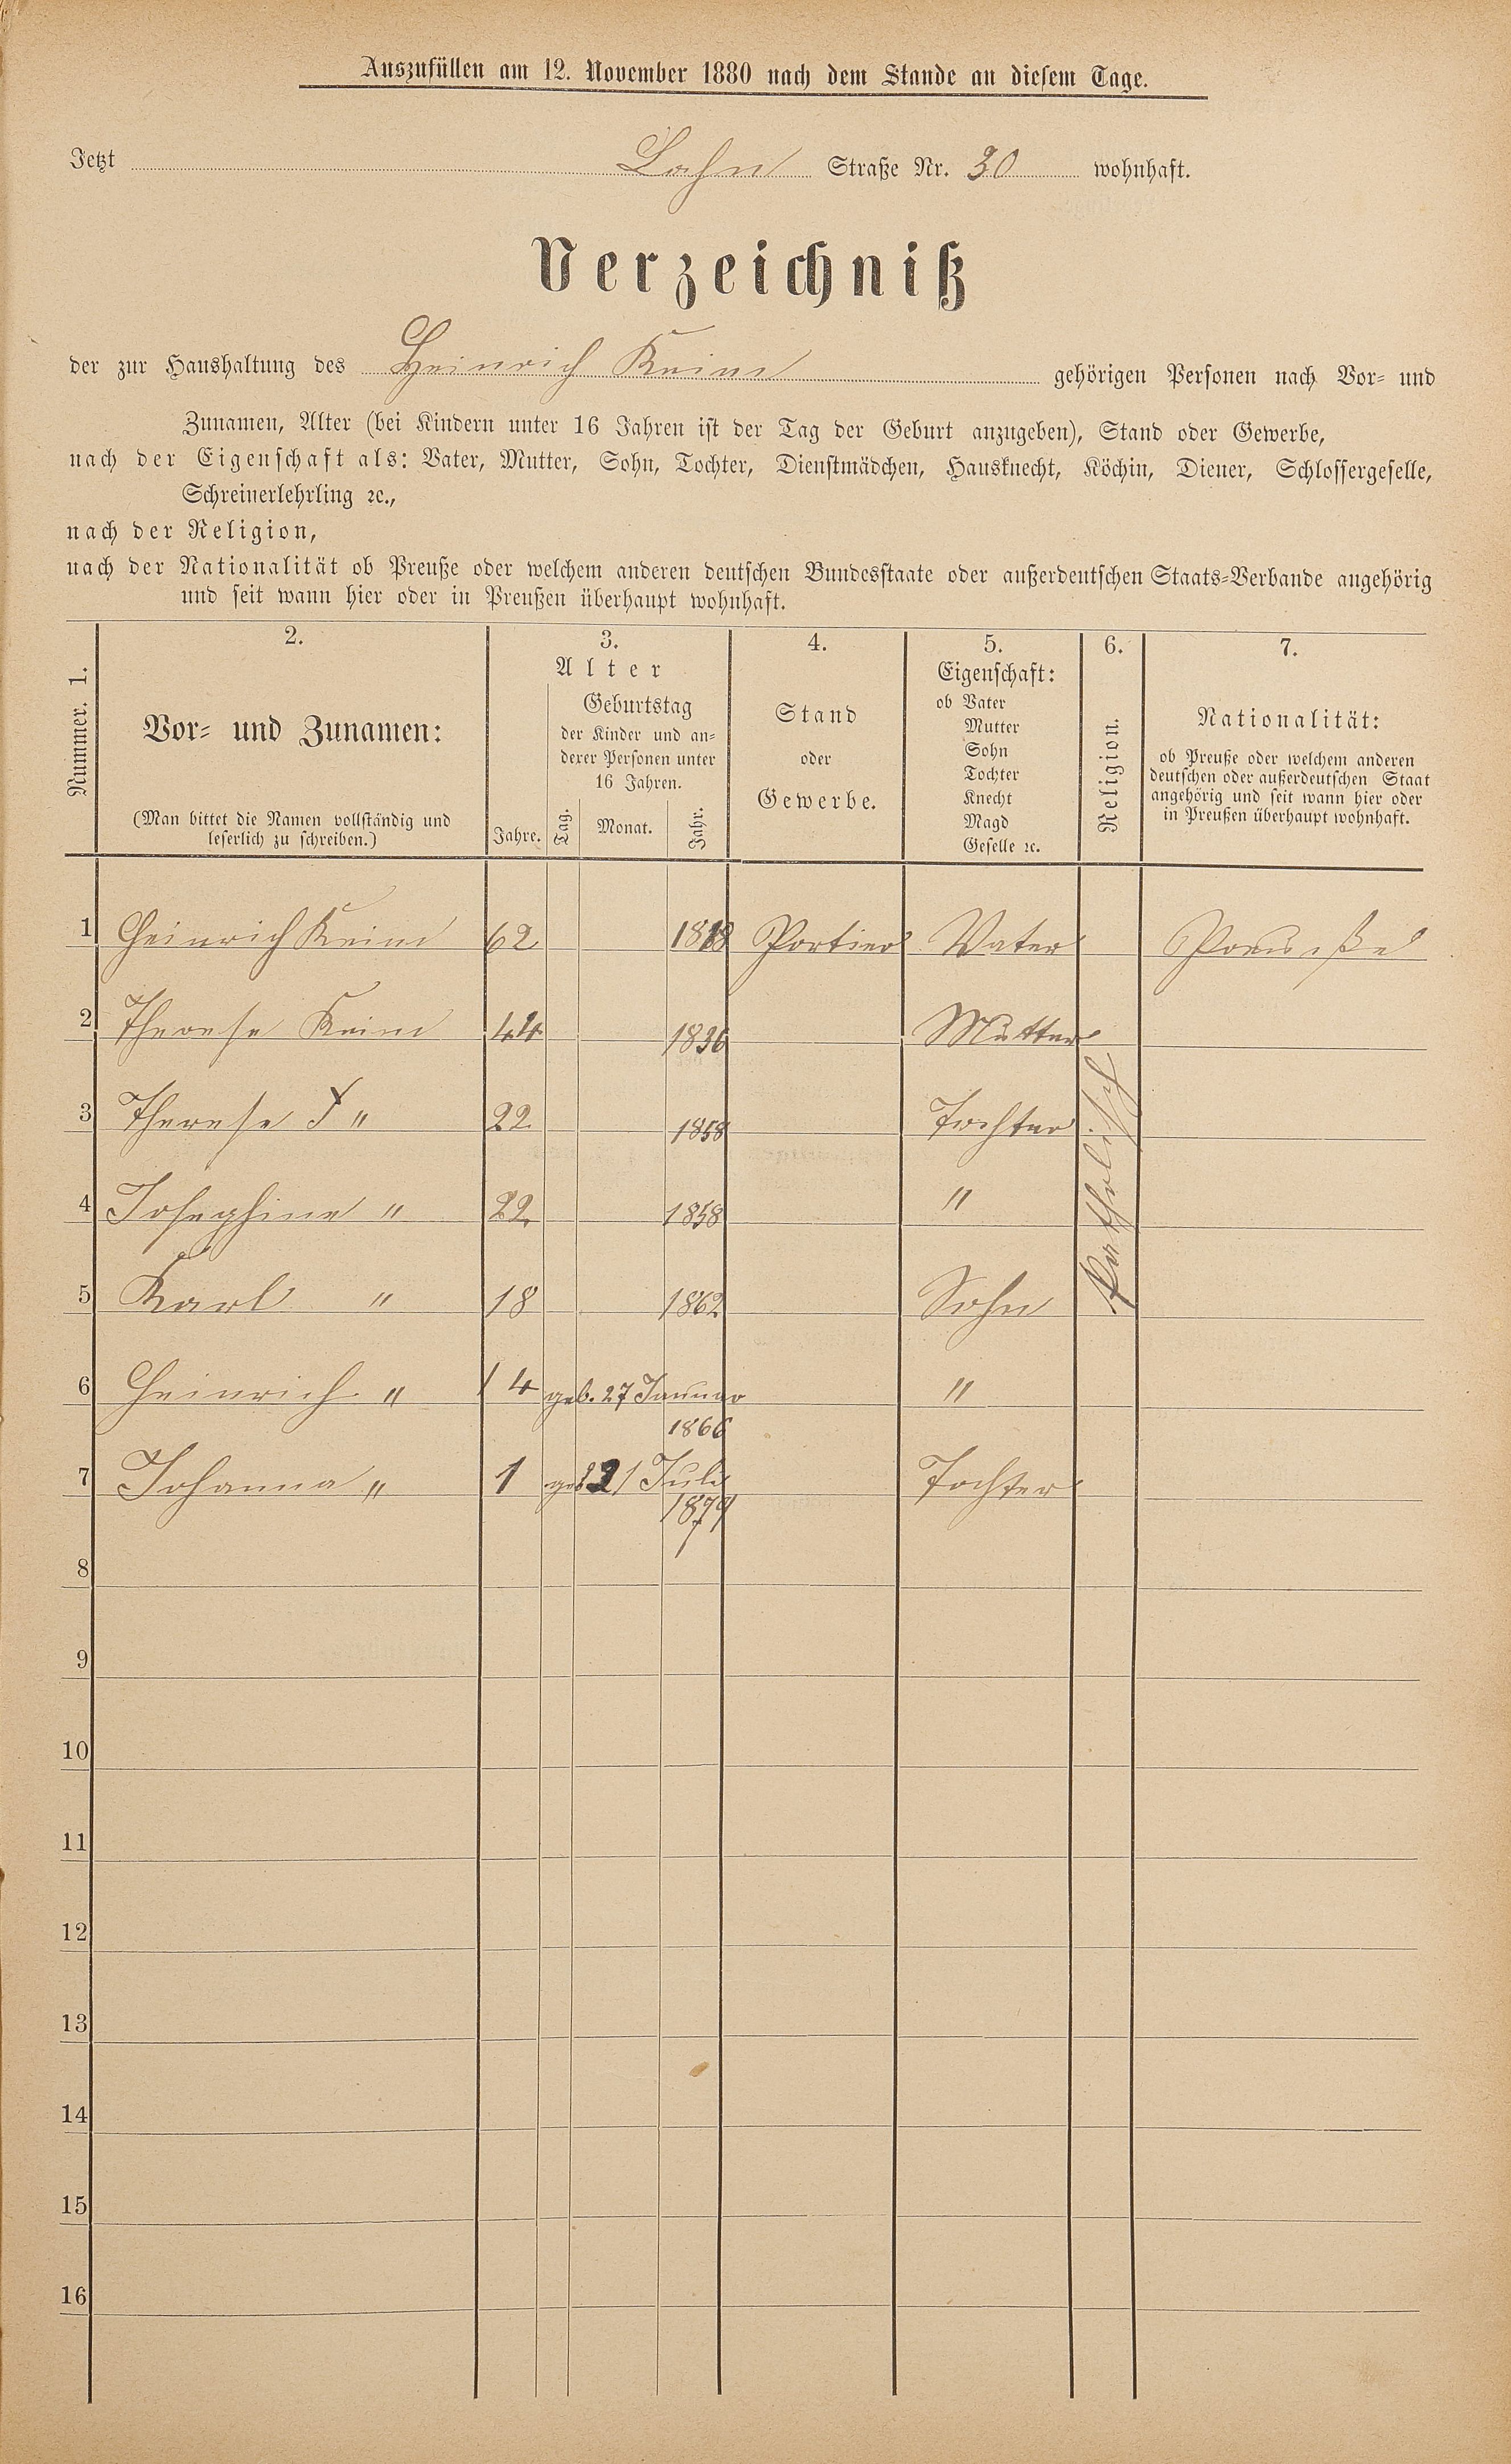 Auszufüllen am 12. November 1880 nach dem Stande an diesem Tage.
Jetzt Lahn Straße Nr. 30 wohnhaft.
Verzeichniß
der zur Haushaltung des Heinrich Keim gehörigen Personen nach Vor- und
Zunamen, Alter (bei Kindern unter 16 Jahren ist der Tag der Geburt anzugeben), Stand oder Gewerbe,
nach der Eigenschaft als: Vater, Mutter, Sohn, Tochter, Dienstmädchen, Hausknecht, Köchin, Diener, Schlossergeselle,
Schreinerlehrling ꝛc.,
nach der Religion,
nach der Nationalität ob Preuße oder welchem anderen deutschen Bundesstaate oder außerdeutschen Staats-Verbande angehörig
und seit wann hier oder in Preußen überhaupt wohnhaft.
Nummer. 1.
2.
Vor- und Zunamen:
(Man bittet die Namen vollständig und
leserlich zu schreiben.)
3.
Alter
Jahre.
Geburtstag
der Kinder und an-
derer Personen unter
16 Jahren.
Tag. Monat. Jahr.
4.
Stand
oder
Gewerbe.
5.
Eigenschaft:
ob Vater
Mutter
Sohn
Tochter
Knecht
Magd
Geselle ꝛc.
6.
Religion.
7.
Nationalität:
ob Preuße oder welchem anderen
deutschen oder außerdeutschen Staat
angehörig und seit wann hier oder
in Preußen überhaupt wohnhaft.
1 Heinrich Keim 62 1818 Portier Vater Preuße
2 Therese Keim 44 1836 Mutter
3 Therese " 22 1858 Tochter
4 Josephine " 22 1858 "
5 Karl " 18 1862 Sohn
katholisch
6 Heinrich " 14 geb. 27 Januar "
1866
7 Johanna " 1 geb 21 Juli Tochter
1879
8
9
10
11
12
13
14
15
16